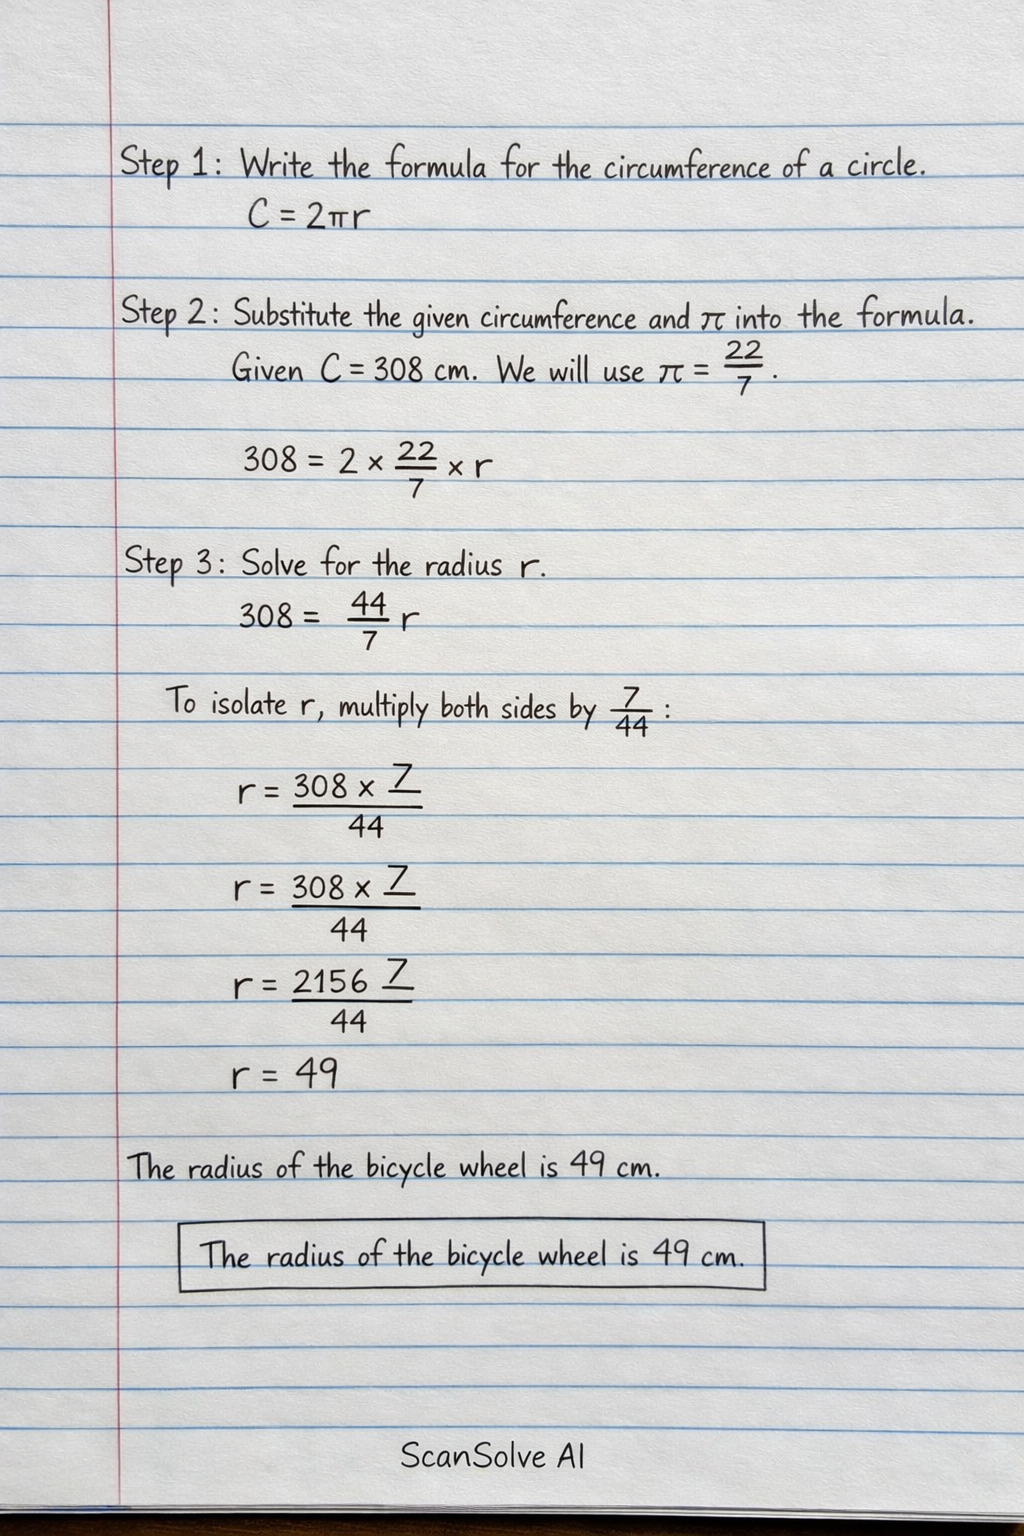 Step 1: Write the formula for the circumference of a circle.
C = 2πr
Step 2: Substitute the given circumference and π into the formula.
Given C = 308 cm. We will use π = 22/7.
308 = 2 × 22/7 × r
Step 3: Solve for the radius r.
308 = 44/7 r
To isolate r, multiply both sides by 7/44:
r = 308 × 7/44
r = 308 × 7/44
r = 2156 7/44
r = 49
The radius of the bicycle wheel is 49 cm.
The radius of the bicycle wheel is 49 cm.
ScanSolve AI